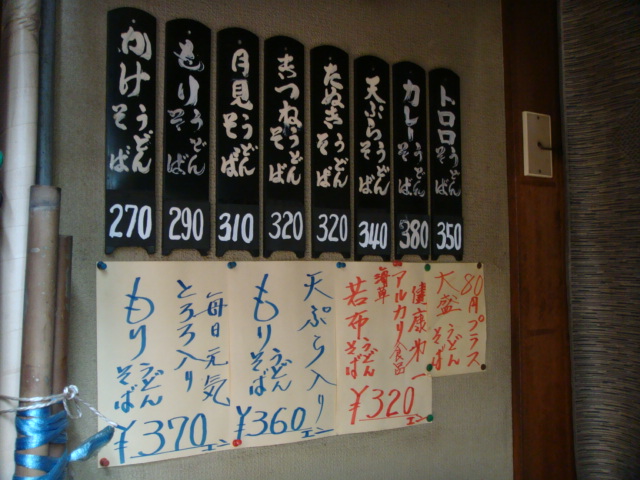 トロロうどんそば
350
カレーうどんそば
380
天ぷらうどんそば
340
たぬきうどんそば
320
きつねうどんそば
320
月見うどんそば
310
もりうどんそば
290
かけうどんそば
270
80円プラス
大盛うどんそば
健康第一
アルカリ食品
海草
若布うどんそば
¥320エン
天ぷら入り
もりうどんそば
¥360エン
毎日元気
とろろ入り
もりうどんそば
¥370エン